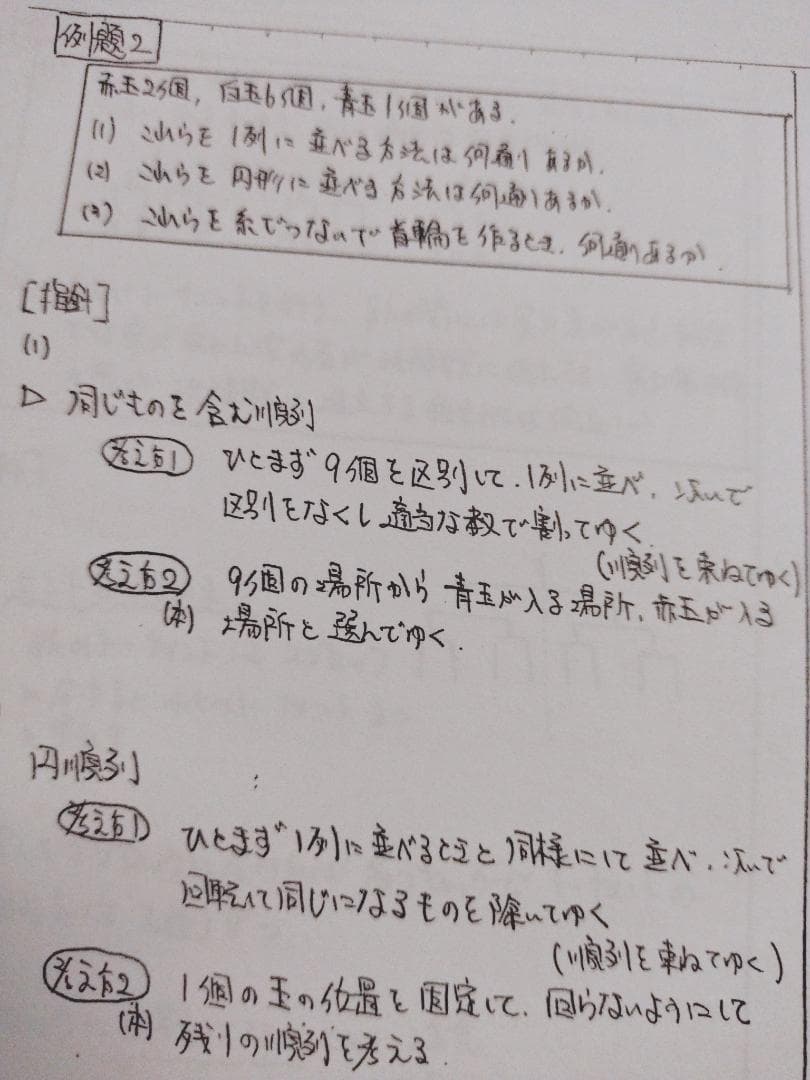 例題2
赤玉2個, 白玉6個, 青玉1個がある.
(1) これらを1列に並べる方法は何通りあるか.
(2) これらを円形に並べる方法は何通りあるか.
(3) これらを糸でつないで首輪を作るとき, 何通りあるか.
[指針]
(1)
▷ 同じものを含む順列
考え方1 ひとまず9個を区別して, 1列に並べ, 次いで
区別をなくし適当な数で割ってゆく
(順列を束ねてゆく)
考え方2 9個の場所から青玉が入る場所, 赤玉が入る
(本) 場所と選んでゆく.
円順列
考え方1 ひとまず1列に並べるときと同様にして並べ, 次いで
回転して同じになるものを除いてゆく
(順列を束ねてゆく)
考え方2 1個の玉の位置を固定して, 回らないようにして
(本) 残りの順列を考える.